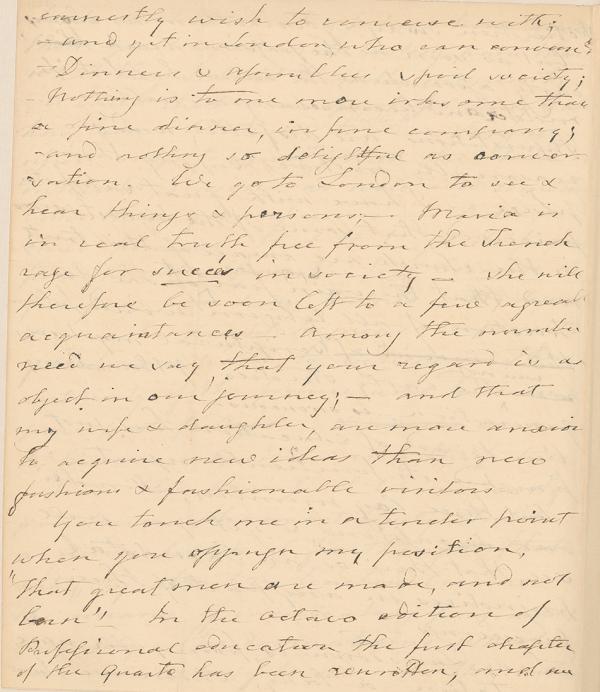 earnestly wish to converse with;
- and yet in London who can converse
- Dinners & assemblies spoil society;
Nothing is to me more irksome than
a fine dinner, in fine company;
- and nothing so delightful as conver-
sation. We go to London to see &
hear things & persons; - Maria is
in real truth free from the French
rage for succès in society - She will
therefore be soon left to a few agreeable
acquaintances - Among the number
need we say that your regard is an
object in our journey; - and that
my wife & daughter, are more anxious
to acquire new ideas than new
fashions & fashionable visitors
You touch me in a tender point
when you oppugn my position,
"That great men are made, and not
born"! In the octavo edition of
Professional education the first chapter
of the Quarto has been rewritten, and